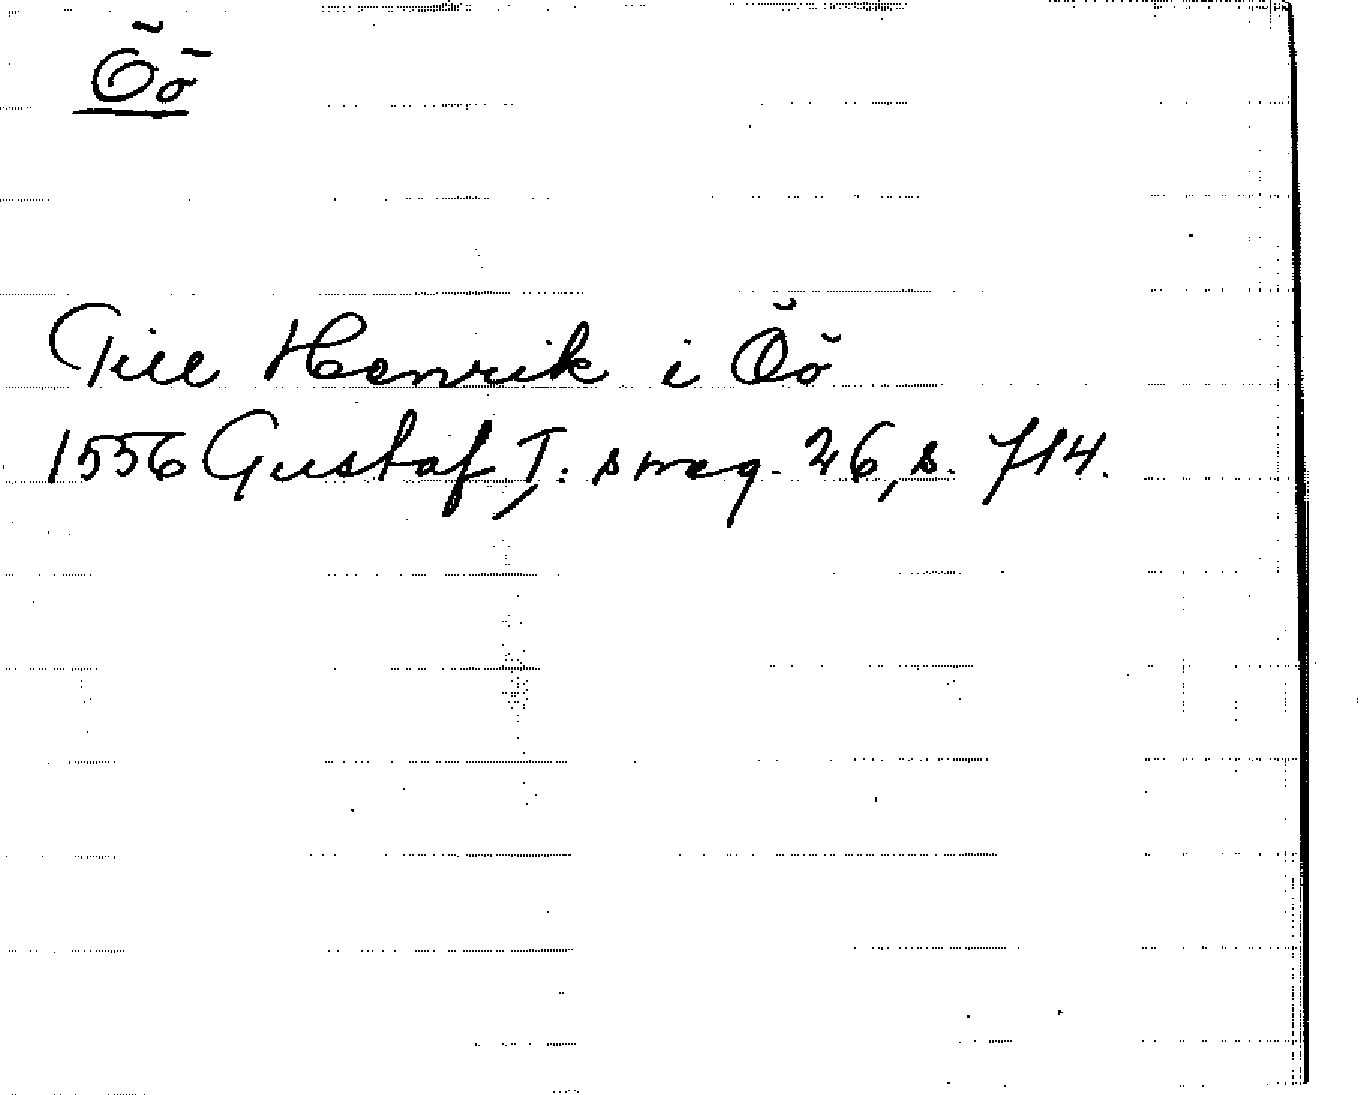 Öö
Till Henrik i Öö
1556 Gustaf I:s reg. 26, s. 714.